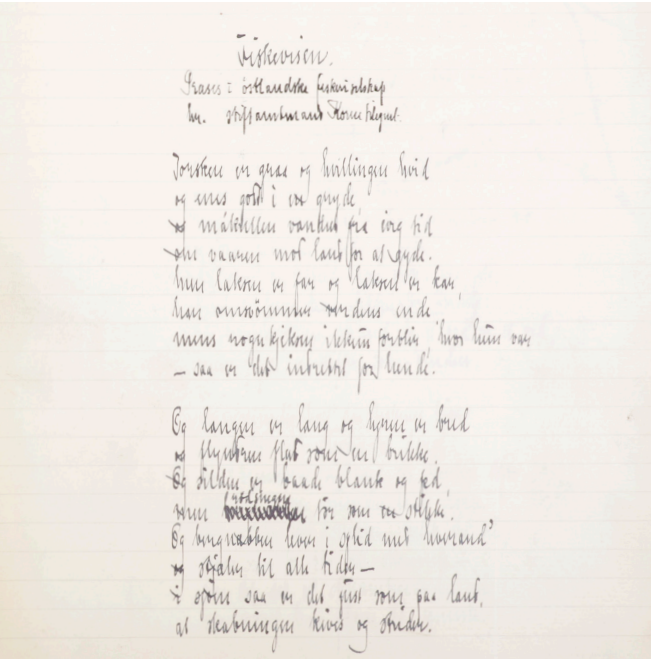 Fiskevisen.
østlandske fiskeriselskap
hr. stiftamtmand
Torsken er graa og hvillingen hvid
og enes godt i en gryde
og makrellen vanker fra evig tid
om vaaren mod land for at gyde.
hun laksen er far og laksen er kar,
han omsvømmer verdens ende
mens rognkjeksen forblir, hvor hun var
– saa er det indrettet for hende.
Og langen er lang og lyren er bred
og flyndren flad som en brikke.
Og silden er baade blank og fed,
men tør som en stikke.
Og bergnabben lever i splid med hverand'
og stjæler til alle tider –
i sjøen saa er det just som paa land,
at skabningen kives og strider.